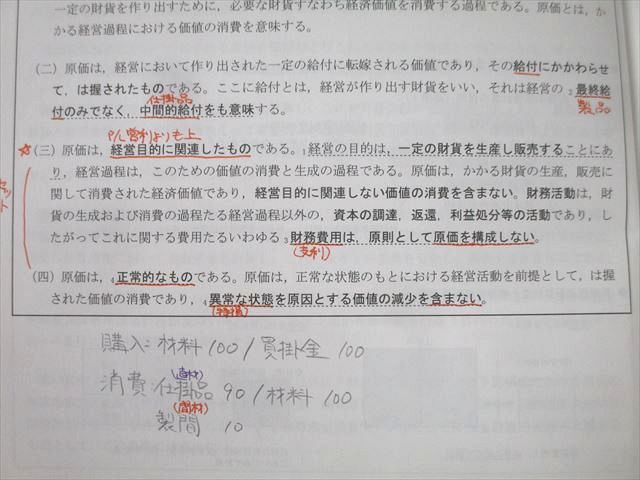 一定の財貨を作り出すために，必要な財貨すなわち経済価値を消費する過程である。原価とは，か
かる経営過程における価値の消費を意味する。
(二) 原価は，経営において作り出された一定の給付に転嫁される価値であり，その給付にかかわらせ
て，は握されたものである。ここに給付とは，経営が作り出す財貨をいい，それは経営の2最終給
仕掛品
付のみでなく，中間的給付をも意味する。
製品
P/L営利よりも上
☆(三) 原価は，経営目的に関連したものである。1経営の目的は，一定の財貨を生産し販売することにあ
り，経営過程は，このための価値の消費と生成の過程である。原価は，かかる財貨の生産，販売に
関して消費された経済価値であり，経営目的に関連しない価値の消費を含まない。財務活動は，財
貨の生成および消費の過程たる経営過程以外の，資本の調達，返還，利益処分等の活動であり，し
たがってこれに関する費用たるいわゆる3財務費用は，原則として原価を構成しない。
(支利)
(四) 原価は，4正常的なものである。原価は，正常な状態のもとにおける経営活動を前提として，は握
された価値の消費であり，4異常な状態を原因とする価値の減少を含まない。
(特損)
購入：材料 100 / 買掛金 100
(直材)
消費：仕掛品 90 / 材料 100
(間材)
製間 10